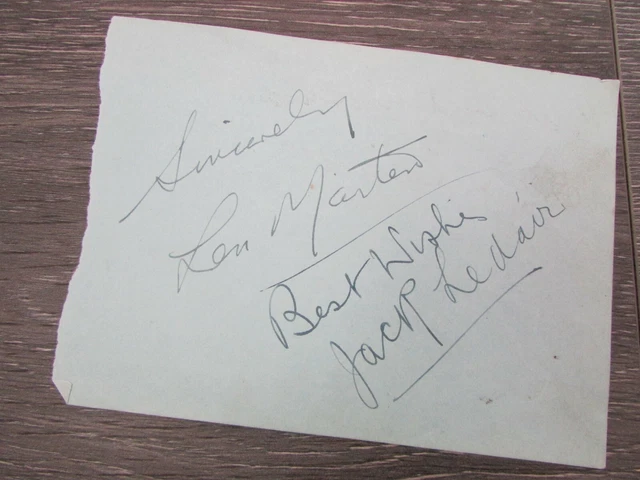 Sincerely
Len Marten
Best Wishes
Jack Ledair